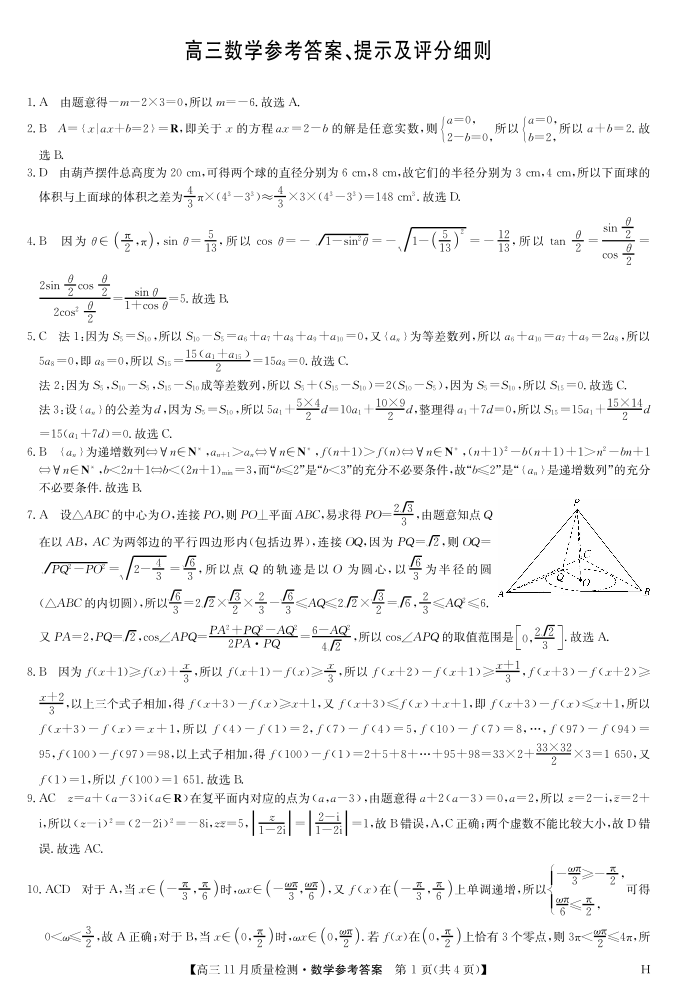 高三数学参考答案、提示及评分细则
1. A　由题意得−m−2×3=0,所以 m=−6. 故选 A.
2. B　A={x|ax+b=2}=R,即关于 x 的方程 ax=2−b 的解是任意实数,则{a=0, 2−b=0, 所以{a=0, b=2, 所以 a+b=2. 故
选 B.
3. D　由葫芦摆件总高度为 20 cm,可得两个球的直径分别为 6 cm,8 cm,故它们的半径分别为 3 cm,4 cm,所以下面球的
体积与上面球的体积之差为 4/3 π×(4³−3³)≈4/3×3×(4³−3³)=148 cm³. 故选 D.
4. B　因为 θ∈(π/2,π), sin θ=5/13,所以 cos θ=−√(1−sin²θ)=−√(1−(5/13)²)=−12/13,所以 tan θ/2=(sin θ/2)/(cos θ/2)=
(2sin θ/2 cos θ/2)/(2cos² θ/2)=sin θ/(1+cos θ)=5. 故选 B.
5. C　法 1:因为 S₅=S₁₀,所以 S₁₀−S₅=a₆+a₇+a₈+a₉+a₁₀=0,又{aₙ}为等差数列,所以 a₆+a₁₀=a₇+a₉=2a₈,所以
5a₈=0,即 a₈=0,所以 S₁₅=15(a₁+a₁₅)/2=15a₈=0. 故选 C.
法 2:因为 S₅,S₁₀−S₅,S₁₅−S₁₀成等差数列,所以 S₅+(S₁₅−S₁₀)=2(S₁₀−S₅),因为 S₅=S₁₀,所以 S₁₅=0. 故选 C.
法 3:设{aₙ}的公差为 d,因为 S₅=S₁₀,所以 5a₁+(5×4)/2 d=10a₁+(10×9)/2 d,整理得 a₁+7d=0,所以 S₁₅=15a₁+(15×14)/2 d
=15(a₁+7d)=0. 故选 C.
6. B　{aₙ}为递增数列⇔∀n∈N*,aₙ₊₁>aₙ⇔∀n∈N*,f(n+1)>f(n)⇔∀n∈N*,(n+1)²−b(n+1)+1>n²−bn+1
⇔∀n∈N*,b<2n+1⇔b<(2n+1)min=3,而“b≤2”是“b<3”的充分不必要条件,故“b≤2”是“{aₙ}是递增数列”的充分
不必要条件. 故选 B.
7. A　设△ABC 的中心为 O,连接 PO,则 PO⊥平面 ABC,易求得 PO=2√3/3,由题意知点 Q
在以 AB, AC 为两邻边的平行四边形内(包括边界),连接 OQ,因为 PQ=√2,则 OQ=
√(PQ²−PO²)=√(2−4/3)=√6/3,所以点 Q 的轨迹是以 O 为圆心,以 √6/3 为半径的圆
(△ABC 的内切圆),所以 √6/3=2√2×√3/2×2/3−√6/3≤AQ≤2√2×√3/2=√6, 2/3≤AQ²≤6.
又 PA=2,PQ=√2,cos∠APQ=(PA²+PQ²−AQ²)/(2PA·PQ)=(6−AQ²)/(4√2),所以 cos∠APQ 的取值范围是[0, 2√2/3]. 故选 A.
P
C
Q
O
A
B
8. B　因为 f(x+1)≥f(x)+x/3,所以 f(x+1)−f(x)≥x/3,所以 f(x+2)−f(x+1)≥(x+1)/3,f(x+3)−f(x+2)≥
(x+2)/3,以上三个式子相加,得 f(x+3)−f(x)≥x+1,又 f(x+3)≤f(x)+x+1,即 f(x+3)−f(x)≤x+1,所以
f(x+3)−f(x)=x+1,所以 f(4)−f(1)=2,f(7)−f(4)=5,f(10)−f(7)=8,…,f(97)−f(94)=
95,f(100)−f(97)=98,以上式子相加,得 f(100)−f(1)=2+5+8+…+95+98=33×2+(33×32)/2×3=1 650,又
f(1)=1,所以 f(100)=1 651. 故选 B.
9. AC　z=a+(a−3)i(a∈R)在复平面内对应的点为(a,a−3),由题意得 a+2(a−3)=0,a=2,所以 z=2−i,z̄=2+
i,所以(z−i)²=(2−2i)²=−8i,zz̄=5,|z/(1−2i)|=|(2−i)/(1−2i)|=1,故 B 错误,A,C 正确;两个虚数不能比较大小,故 D 错
误. 故选 AC.
10. ACD　对于 A,当 x∈(−π/3,π/6)时,ωx∈(−ωπ/3,ωπ/6),又 f(x)在(−π/3,π/6)上单调递增,所以{−ωπ/3≥−π/2, ωπ/6≤π/2, 可得
0<ω≤3/2,故 A 正确;对于 B,当 x∈(0,π/2)时,ωx∈(0,ωπ/2). 若 f(x)在(0,π/2)上恰有 3 个零点,则 3π<ωπ/2≤4π,所
【高三 11 月质量检测·数学参考答案　第 1 页(共 4 页)】
H